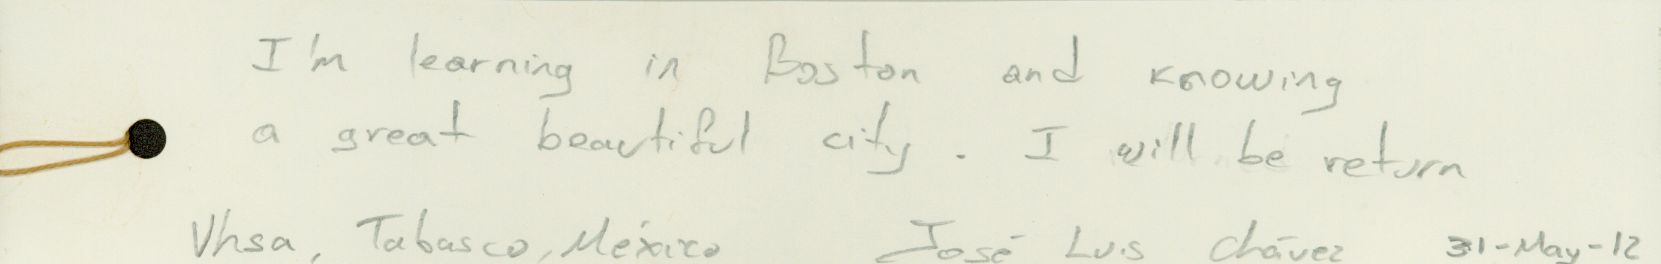 I'm learning in Boston and knowing
a great beautiful city. I will be return
Vhsa, Tabasco, México José Luis Chávez 31-May-12